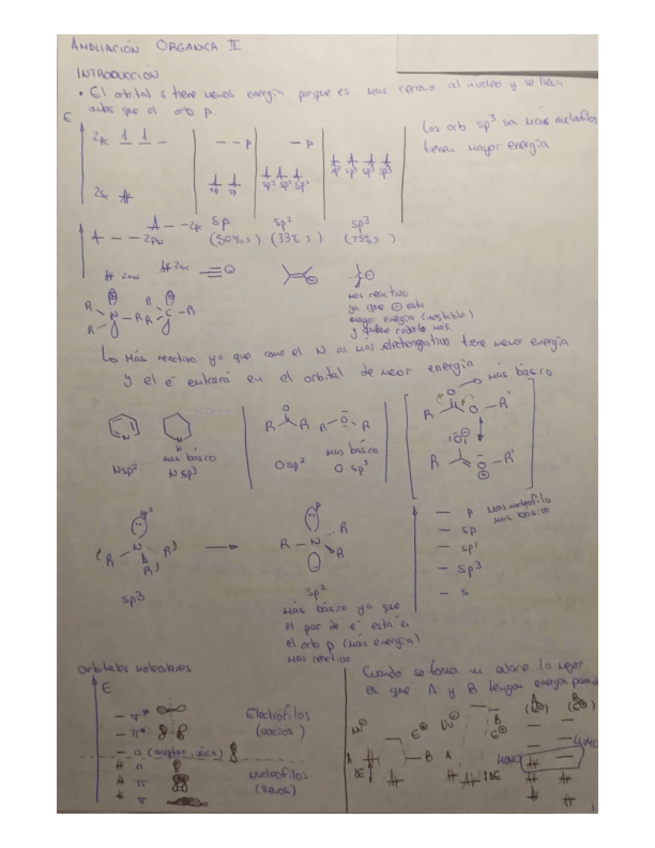 AMPLIACIÓN ORGANICA II
INTRODUCCIÓN
• El orbital s tiene menos energía porque es más cercano al núcleo y se llena
antes que el orb p.
E
Los orb sp³ son más nucleófilos
tienen mayor energía
2p
p
p
sp sp
sp² sp² sp²
sp³ sp³ sp³ sp³
2s
sp
sp²
sp³
(50% s)
(33% s)
(25% s)
más reactivo
ya que ⊖ está
mayor energía (inestable)
y quiere cederlo más.
R
N
R
R
R
C
R
R
↳ Más reactivo ya que como el N es más electronegativo tiene menor energía
y el e⁻ entrará en el orbital de menor energía
más básico
N
N
H
más básico
Nsp²
N sp³
O
R
R
R
O
R
más básico
O sp²
O sp³
R
O
O
R'
R
O
R'
R
N
R'
R''
sp3
R
N
R
R
sp²
más básico ya que
el par de e⁻ está en
el orb p (más energía)
más reactivo
p más nucleófilo
más básico
sp
sp²
sp³
s
Orbitales moleculares
E
σ*
π*
a (aceptor, vacío)
n
π
σ
Electrófilos
(vacíos)
Nucleófilos
(llenos)
Cuando se forma un enlace lo mejor
es que A y B tengan energía
Nu⊖
E⊕
A
B
ΔE
Nu⊖
B
E⊕
A
ΔE
A
B
HOMO
LUMO